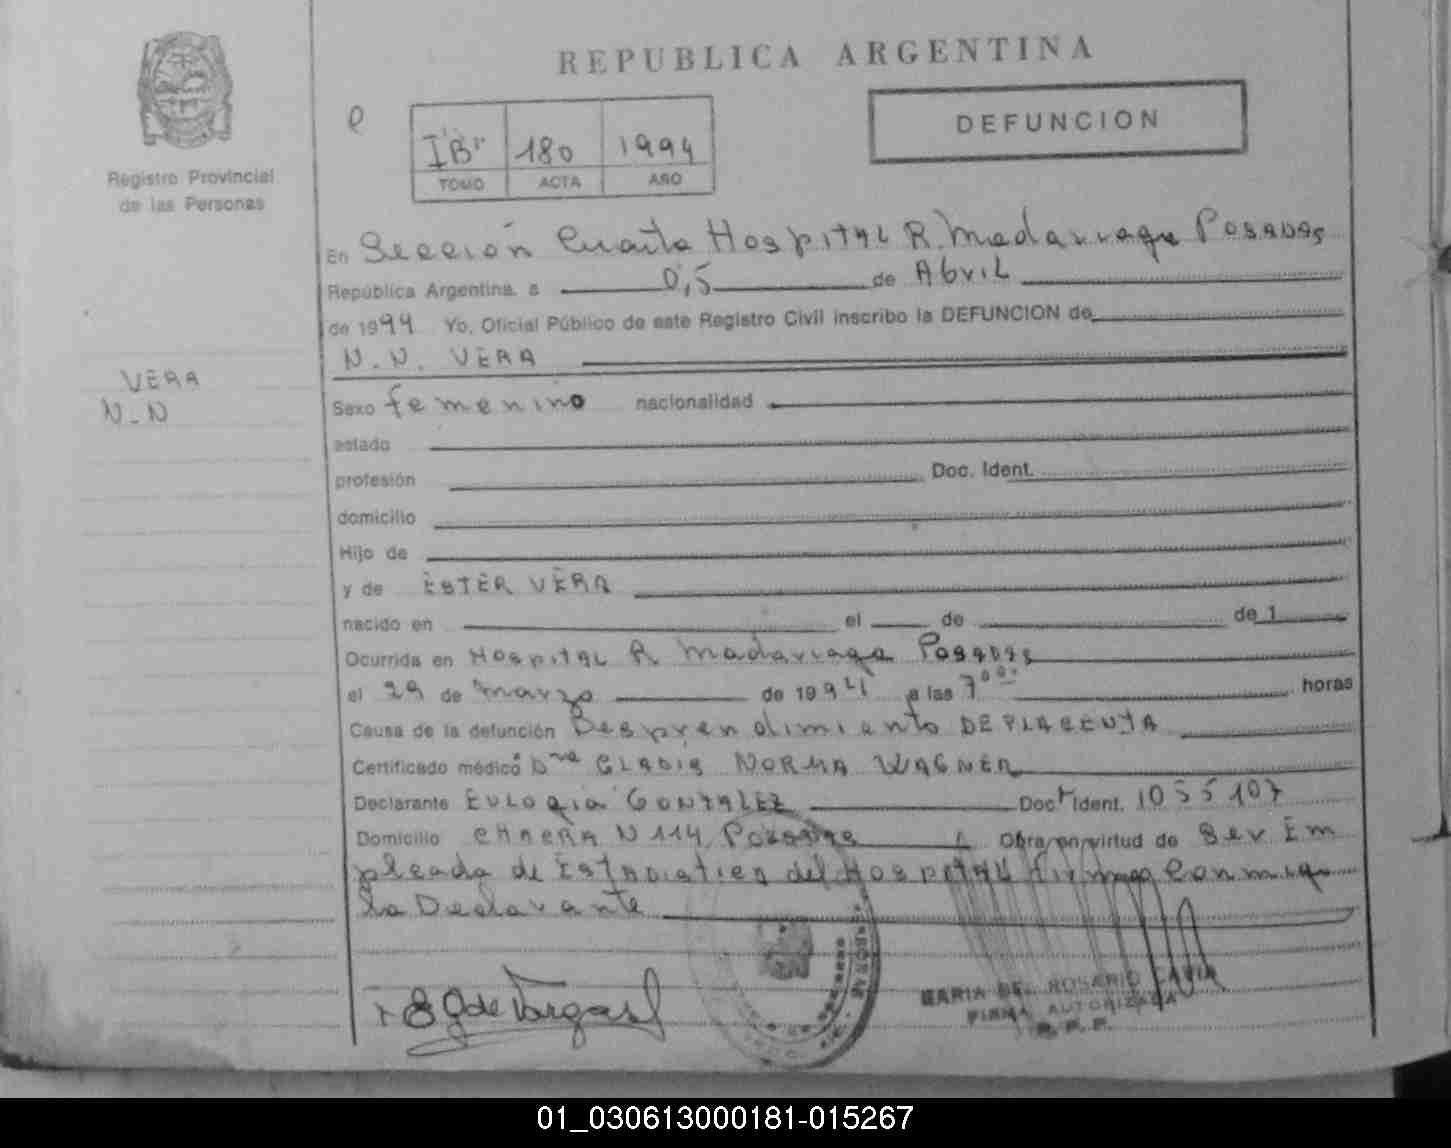 REPUBLICA ARGENTINA
DEFUNCION
IB" 180 1994
TOMO ACTA AÑO
Registro Provincial
de las Personas
En Sección Cuarta Hospital R. Madariaga Posadas
República Argentina, a 0,5 de Abril
de 1994 Yo, Oficial Público de este Registro Civil inscribo la DEFUNCION de
N. N. VERA
VERA
N-N
Sexo femenino nacionalidad
estado
profesión Doc. Ident.
domicilio
Hijo de
y de ESTER VERA
nacido en el de de 1
Ocurrida en Hospital R Madariaga Posadas
el 29 de Marzo de 1994 a las 7
horas
Causa de la defunción Desprendimiento DE PLACENTA
Certificado médico Dra GLADIS NORMA WAGNER
Declarante EULOGIA GONZALEZ Doc. Ident. 1055107
Domicilio CHACRA N 114 Posadas Obra en virtud de Ser Em
pleada de Estadistica del Hospital Firma Conmigo
La Declarante
MARIA DEL ROSARIO
FIRMA AUTORIZADA
01_030613000181-015267